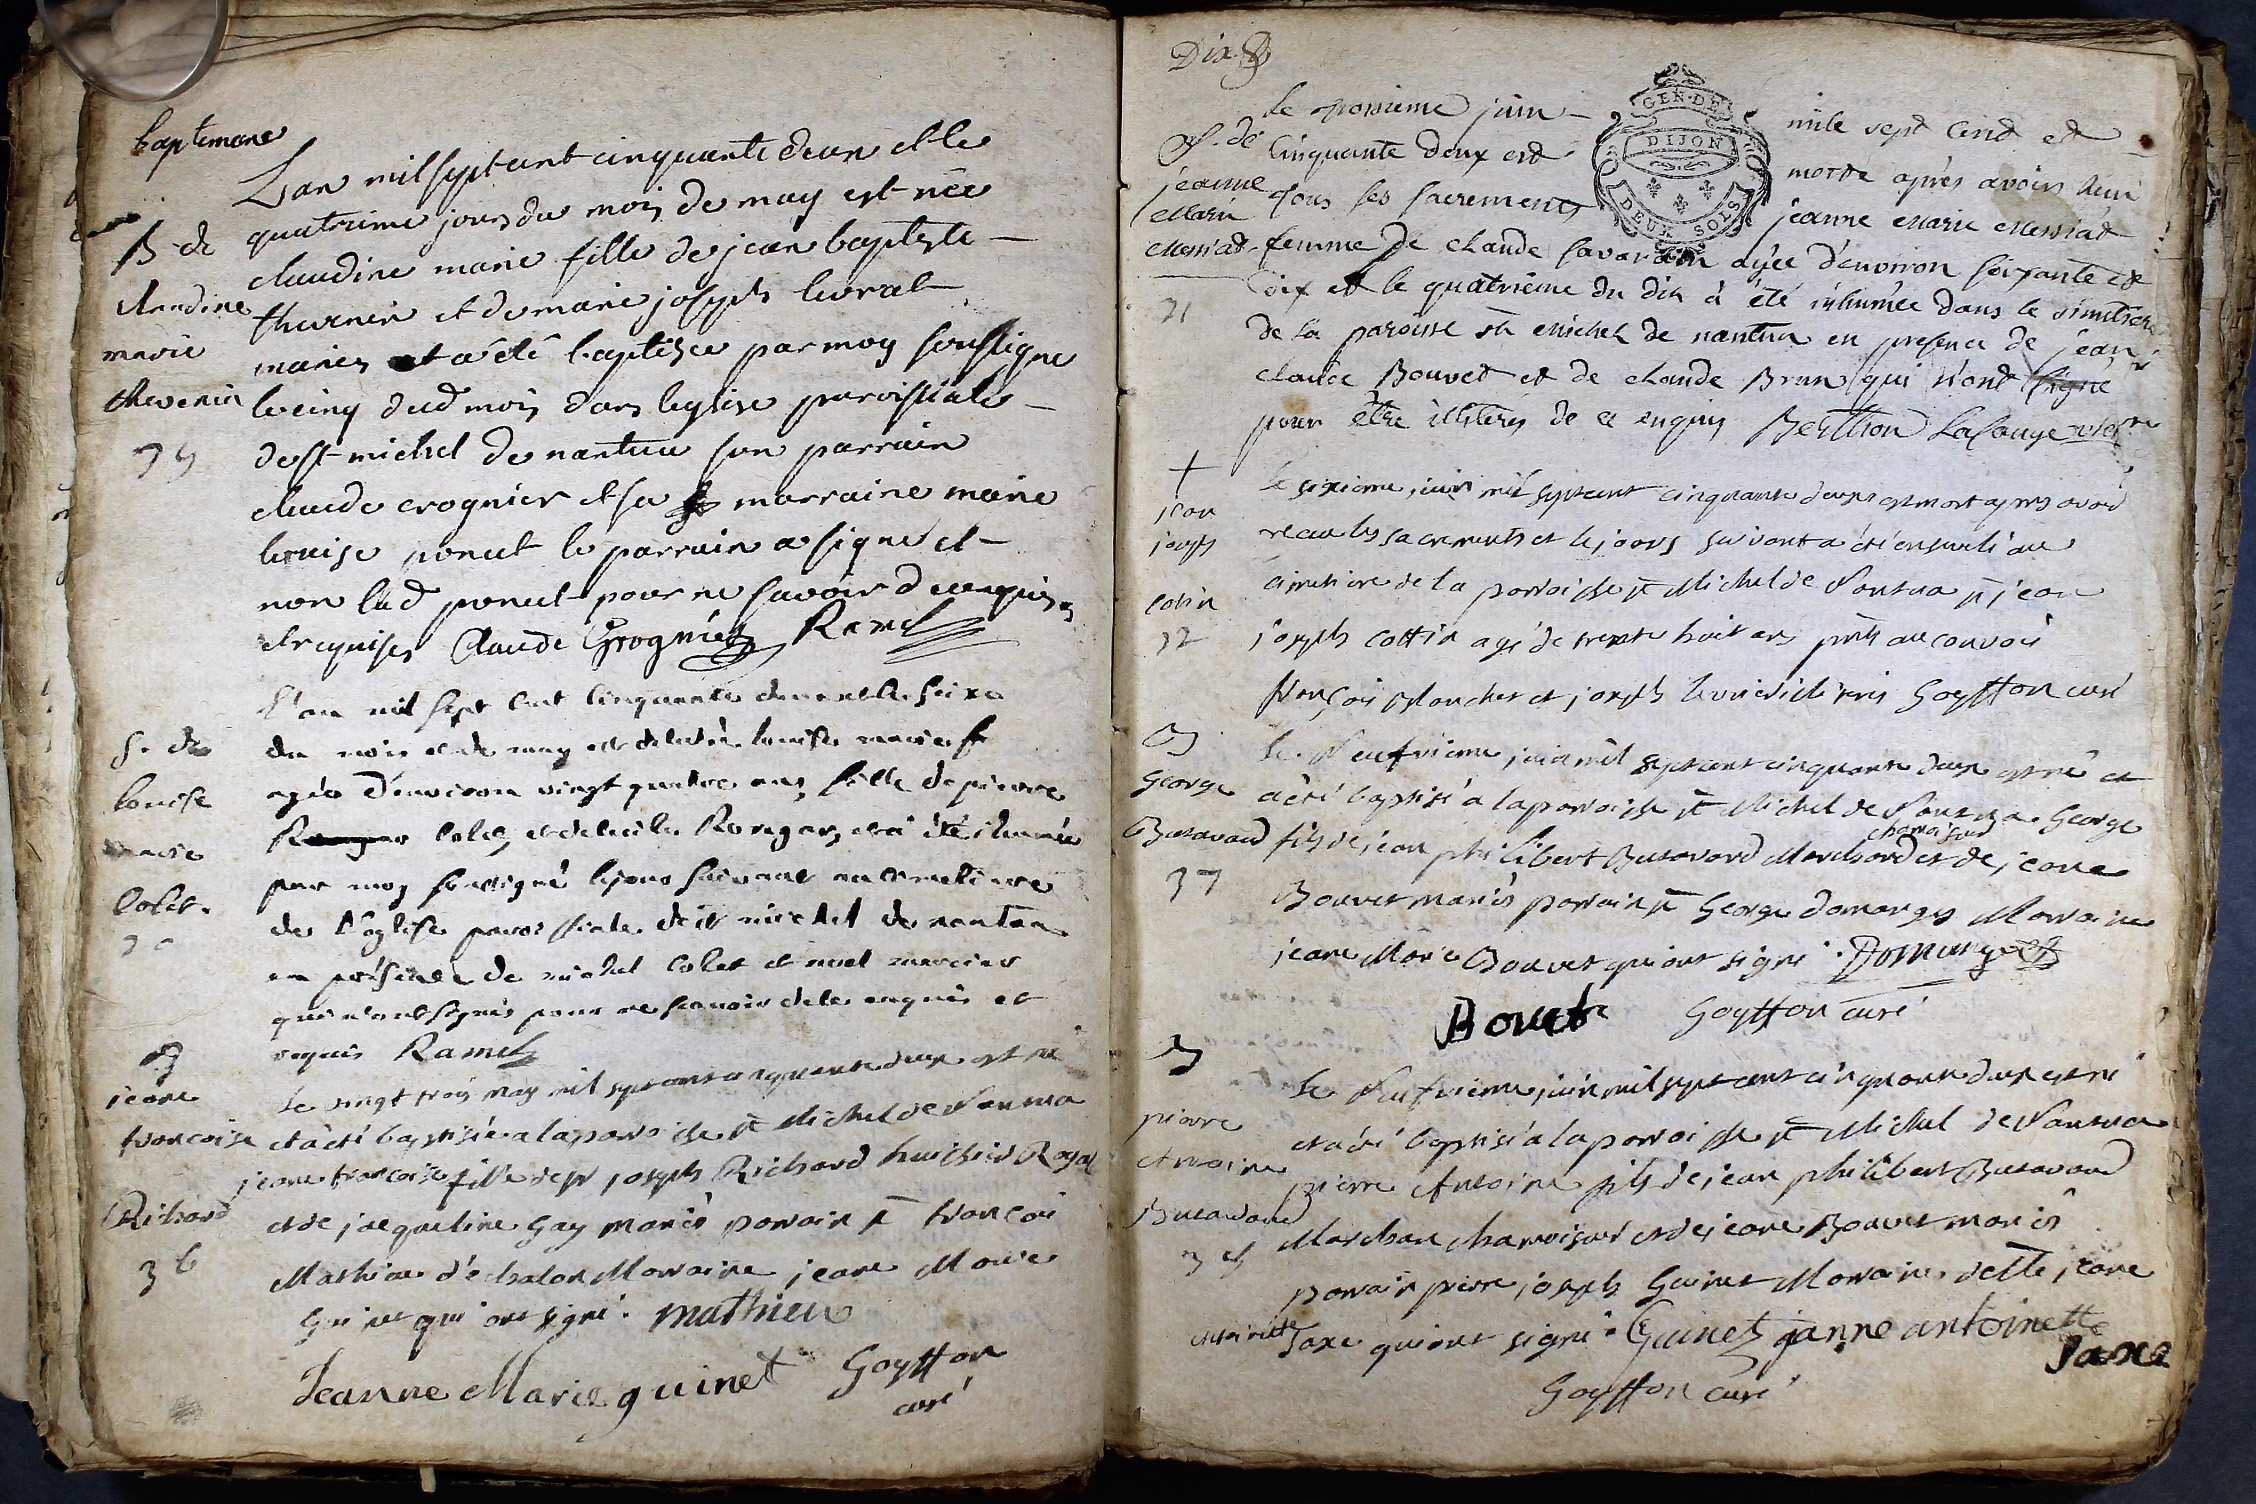 baptemare
B. de
claudine
marie
thevenin
L'an mil sept cent cinquante deux et le
quatrieme jour du mois de may est née
claudine marie fille de jean baptiste
thevenin et de marie joseph levrat
mariés et a été baptisée par moy soussigné
le cinq dud mois dans leglise paroissiale
de st michel de nantua son parrain
claude crognier et sa marraine marie
louise poncet le parrain a signé et
non lad poncet pour ne savoir de ce enquis
et requises Claude Grognier Ramel
S. de
louise
marie
Colet
L'an mil sept cent cinquante deux et le seize
du mois de may est décédée louise marie
agée d'environ vingt quatre ans, fille de pierre
Colet, et de Rougar, et a été inhumée
par moy soussigné le jour suivant au cimetiere
de l'église paroissiale de st michel de nantua
en présence de michel Colet et noel mercier
qui n'ont signés pour ne scavoir de le enquis et
requis Ramel
B
jeane
francoise
Richard
36
Le vingt trois may mil sept cent cinquante deux est né
et a été baptisée a la paroisse st Michel de Nantua
jeane francoise fille de sr joseph Richard huissier Royal
et de jacqueline Gay mariés parrain sr francois
Mathieu d'échalon Marraine jeane Marie
Guinet qui ont signé. mathieu
Jeanne Marie guinet Goyffon
curé
Dix
S. de
jeanne
Marie
Messiat
31
le troisieme juin mile sept cent et
Cinquante deux est morte après avoir reçu
tous les sacrements jeanne Marie Messiat
femme de claude Savarain agée d'environ soixante et
dix et le quatrième du dit à été inhumée dans le simetiere
de la paroisse st Michel de nantua en presence de jean
claude Bouvet et de claude Brun qui n'ont signé
pour être illiterés de ce enquis Berthon Lalouge
GEN. DE
DIJON
DEUX SOLS
+
jean
joseph
Cotin
32
Le sixieme juin mil sept cent cinquante deux est mort apres avoir
recu les sacrements et le jours suivant a été enseveli au
cimetiere de la parroisse st Michel de Nantua sr jean
joseph cottin agé de trente huit ans pnts au convoi
françois plancher et joseph Goyffon curé
B
George
Butavand
37
Le Neufvieme juin mil sept cent cinquante deux est né et
a été baptisé a la parroisse st Michel de Nantua George
fils de jean philibert Butavand Marchand chamoiseur et de jeane
Bouvet mariés parrain sr George domanges Marraine
jeane Marie Bouvet qui ont signé. Domanget
Bouet Goyffon curé
B
pierre
Antoine
Butavand
Le Neufvieme juin mil sept cent cinquante deux est né
et a été baptisé a la parroisse st Michel de Nantua
pierre Antoine fils de jean philibert Butavand
Marchan chamoiseur et de jeane Bouvet mariés
parrain pierre joseph Guinet Marraine delle jeane
antoinette Jaxe qui ont signé. Guinet janne antoinette
Jaxe
Goyffon curé